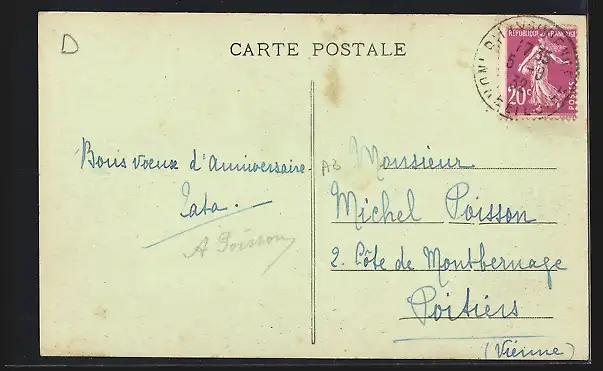 D
CARTE POSTALE
REPUBLIQUE FRANÇAISE
20c
POSTES
17 35
Bons vœux d'Anniversaire.
Tata.
A Poisson
A3
Monsieur
Michel Poisson
2. Côte de Montbernage
Poitiers
(Vienne)